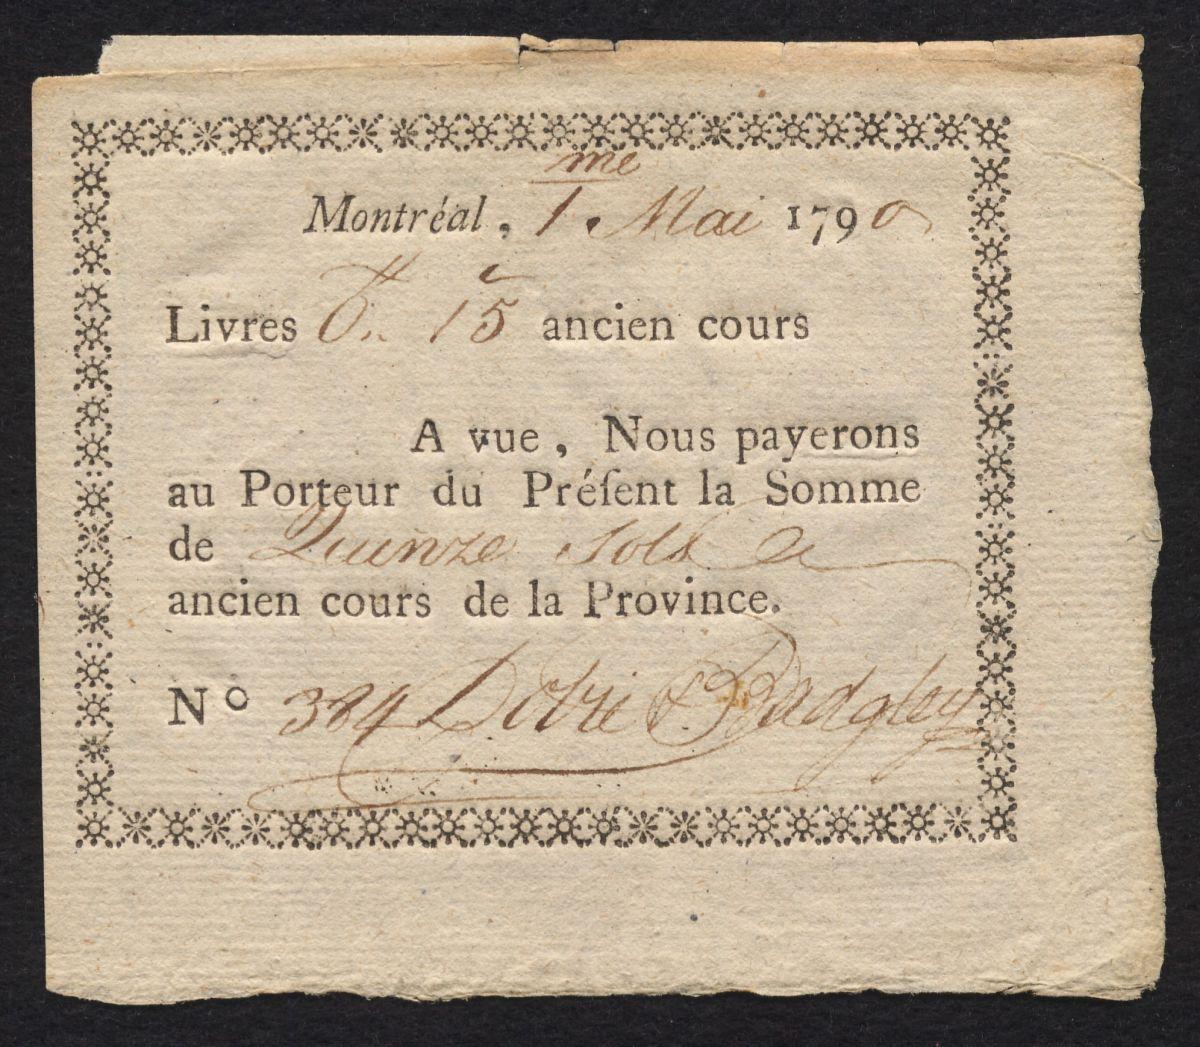 Montréal, 1.me Mai 1790
Livres 0.. 15 ancien cours
A vue, Nous payerons
au Porteur du Préſent la Somme
de Quinze sols
ancien cours de la Province.
No 384 Dobie & Badgley